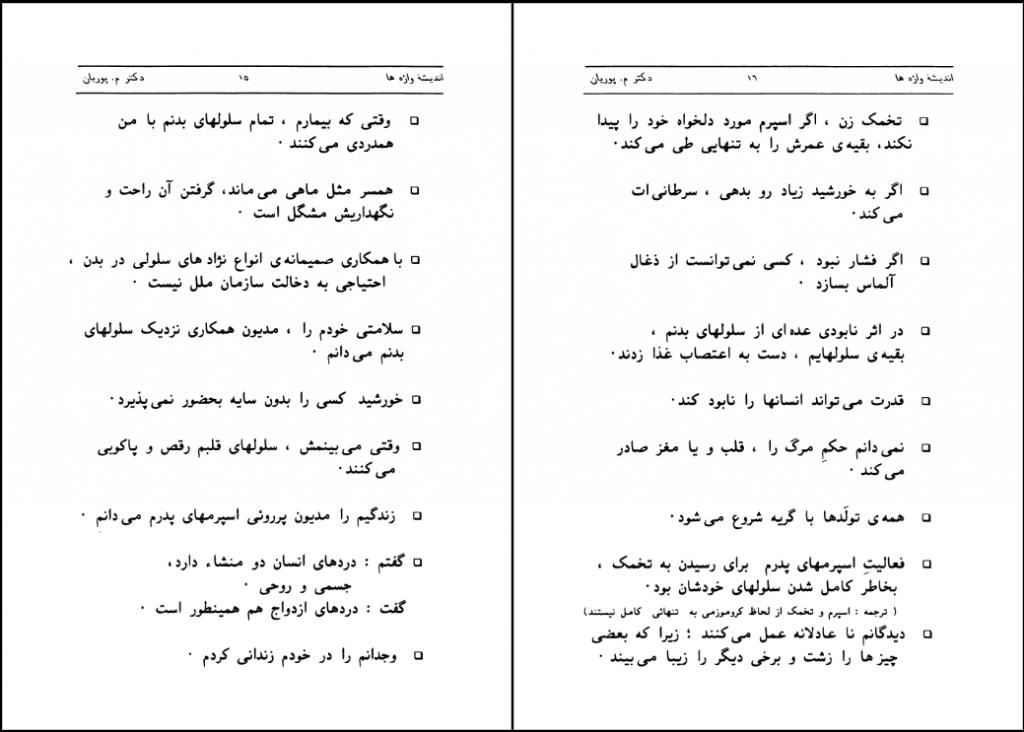 اندیشهٔ واژه ها ۱۵ دکتر م. پوریان
□ وقتی که بیمارم ، تمام سلولهای بدنم با من
همدردی می‌کنند ۰
□ همسر مثل ماهی می‌ماند، گرفتن آن راحت و
نگهداریش مشگل است ۰
□ با همکاری صمیمانه‌ی انواع نژاد های سلولی در بدن ،
احتیاجی به دخالت سازمان ملل نیست ۰
□ سلامتی خودم را ، مدیون همکاری نزدیک سلولهای
بدنم می‌دانم ۰
□ خورشید کسی را بدون سایه بحضور نمی‌پذیرد۰
□ وقتی می‌بینمش ، سلولهای قلبم رقص و پاکوبی
می‌کنند۰
□ زندگیم را مدیون پرروئی اسپرمهای پدرم می‌دانم ۰
□ گفتم : دردهای انسان دو منشاء دارد،
جسمی و روحی ۰
گفت : دردهای ازدواج هم همینطور است ۰
□ وجدانم را در خودم زندانی کردم ۰
اندیشهٔ واژه ها ۱۶ دکتر م. پوریان
□ تخمک زن ، اگر اسپرم مورد دلخواه خود را پیدا
نکند، بقیه‌ی عمرش را به تنهایی طی می‌کند۰
□ اگر به خورشید زیاد رو بدهی ، سرطانی‌ات
می‌کند۰
□ اگر فشار نبود ، کسی نمی‌توانست از ذغال
آلماس بسازد ۰
□ در اثر نابودی عده‌ای از سلولهای بدنم ،
بقیه‌ی سلولهایم ، دست به اعتصاب غذا زدند۰
□ قدرت می‌تواند انسانها را نابود کند۰
□ نمی‌دانم حکمِ مرگ را ، قلب و یا مغز صادر
می‌کند ۰
□ همه‌ی تولّدها با گریه شروع می‌شود۰
□ فعالیتِ اسپرمهای پدرم برای رسیدن به تخمک ،
بخاطر کامل شدن سلولهای خودشان بود۰
( ترجمه : اسپرم و تخمک از لحاظ کروموزمی به تنهائی کامل نیستند)
□ دیدگانم نا عادلانه عمل می‌کنند ؛ زیرا که بعضی
چیز ها را زشت و برخی دیگر را زیبا می‌بیند ۰